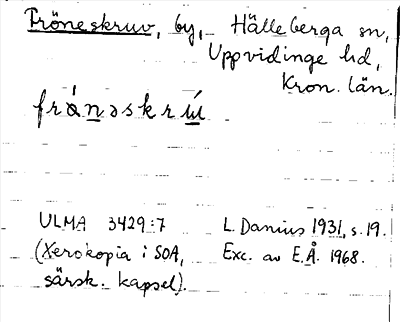 Fröneskruv, by, Hälleberga sn,
Uppvidinge hd,
Kron. län.
frȧ́nəskrú
ULMA 3429:7 L. Danius 1931, s. 19.
(Xerokopia i SOA, Exc. av E.Å. 1968.
särsk. kapsel).